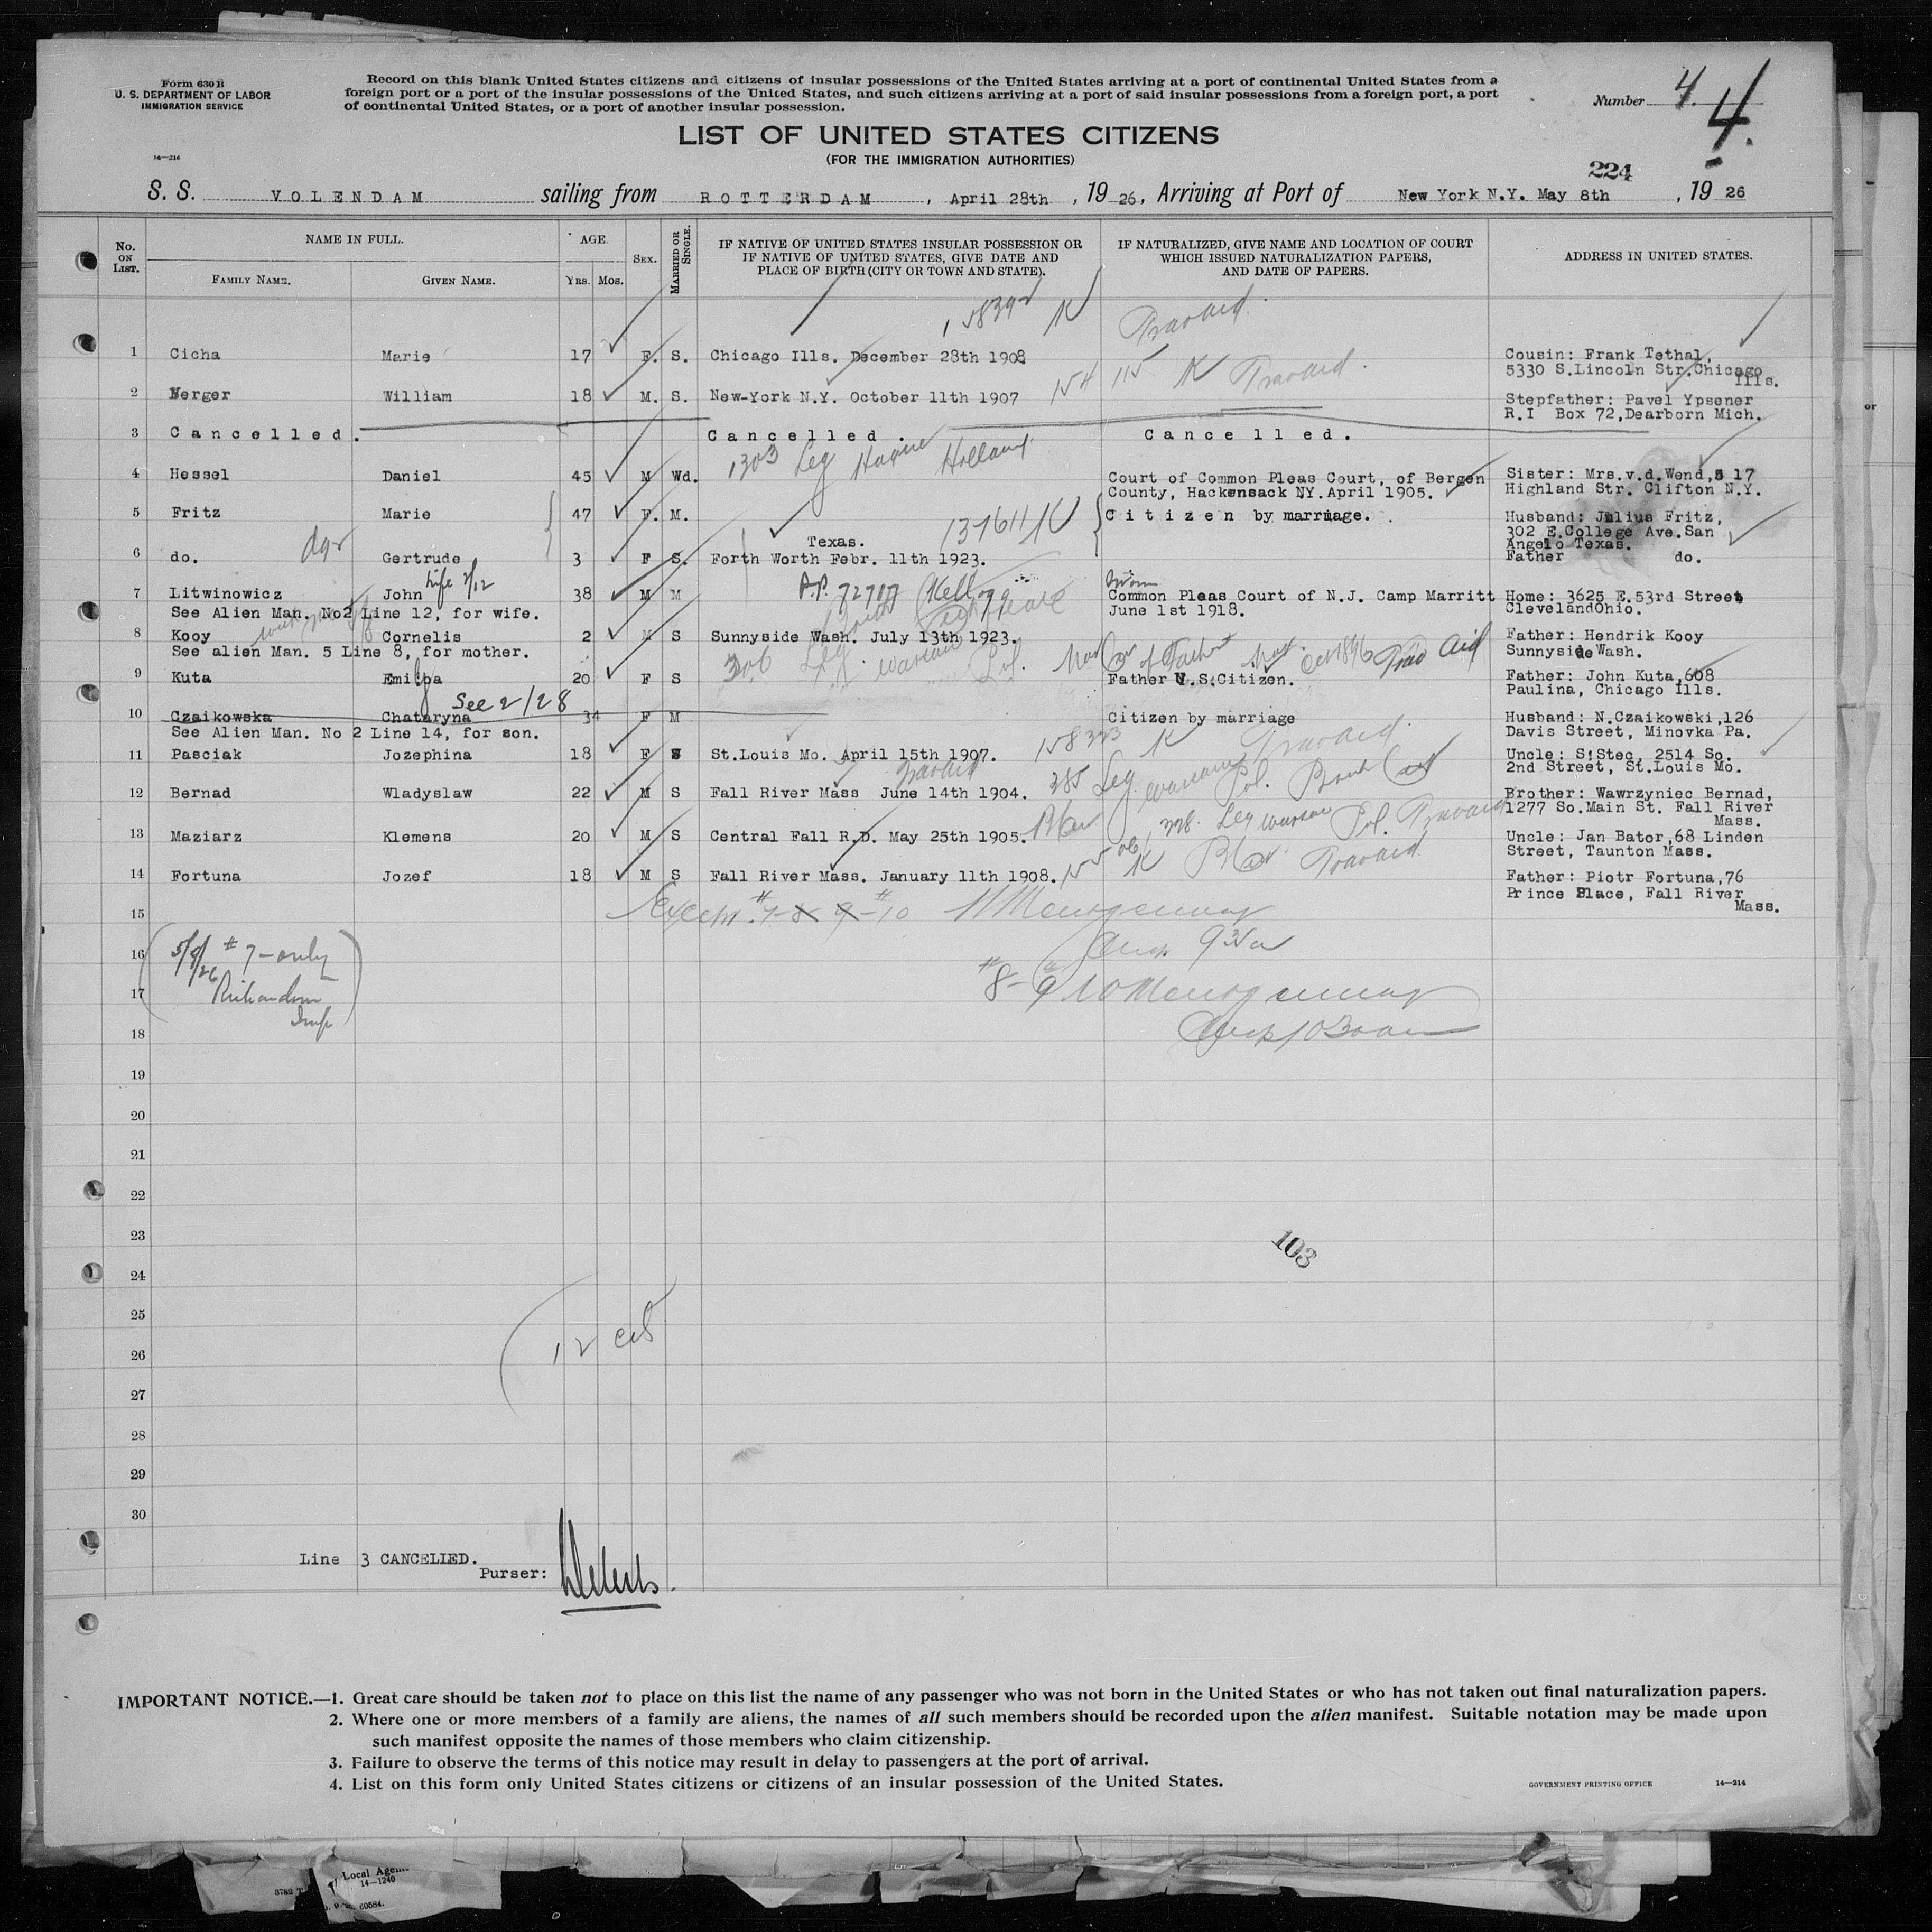 Form 630 B
U. S. DEPARTMENT OF LABOR
IMMIGRATION SERVICE
14—214
Record on this blank United States citizens and citizens of insular possessions of the United States arriving at a port of continental United States from a
foreign port or a port of the insular possessions of the United States, and such citizens arriving at a port of said insular possessions from a foreign port, a port
of continental United States, or a port of another insular possession.
Number 4. 4.
LIST OF UNITED STATES CITIZENS
(FOR THE IMMIGRATION AUTHORITIES)
224
S. S. VOLENDAM sailing from ROTTERDAM, April 28th, 19 26, Arriving at Port of New York N.Y. May 8th, 19 26
No. ON LIST.
NAME IN FULL.
FAMILY NAME. GIVEN NAME.
AGE
YRS. MOS.
SEX.
MARRIED OR SINGLE.
IF NATIVE OF UNITED STATES INSULAR POSSESSION OR
IF NATIVE OF UNITED STATES, GIVE DATE AND
PLACE OF BIRTH (CITY OR TOWN AND STATE).
IF NATURALIZED, GIVE NAME AND LOCATION OF COURT
WHICH ISSUED NATURALIZATION PAPERS,
AND DATE OF PAPERS.
ADDRESS IN UNITED STATES.
1 Cicha Marie 17 F. S. Chicago Ills. December 28th 1908. Cousin: Frank Tethal,
5330 S.Lincoln Str.Chicago
Ills.
2 Nerger William 18 M. S. New-York N.Y. October 11th 1907 Stepfather: Pavel Ypsener
R.I Box 72,Dearborn Mich.
3 Cancelled. Cancelled. Cancelled.
1303 Leg Hague Holland
4 Hessel Daniel 45 M Wd. Court of Common Pleas Court, of Bergen
County, Hackensack NY. April 1905.
Sister: Mrs.v.d.Wend, 517
Highland Str. Clifton N.Y.
5 Fritz Marie 47 F. M. 137611 K Citizen by marriage. Husband: Julius Fritz,
302 E.College Ave.San
Angelo Texas.
Texas.
6 do. Gertrude 3 F S. Forth Worth Febr. 11th 1923. Father do.
7 Litwinowicz John 38 M M Common Pleas Court of N.J. Camp Marritt
June 1st 1918.
Home: 3625 E.53rd Street
Cleveland Ohio.
See Alien Man. No2 Line 12, for wife.
8 Kooy Cornelis 2 M S Sunnyside Wash. July 13th 1923. Father: Hendrik Kooy
Sunnyside Wash.
See alien Man. 5 Line 8, for mother.
306 Leg. Warsaw Pol.
Trav Aid
9 Kuta Emilja 20 F S Father U.S.Citizen. Father: John Kuta, 608
Paulina, Chicago Ills.
See 2/28
10 Czaikowska Chataryna 34 F M Citizen by marriage Husband: N.Czaikowski, 126
Davis Street, Minovka Pa.
See Alien Man. No 2 Line 14, for son.
11 Pasciak Jozephina 18 F S St.Louis Mo. April 15th 1907. Uncle: S.Stec, 2514 So.
2nd Street, St.Louis Mo.
12 Bernad Wladyslaw 22 M S Fall River Mass June 14th 1904. Brother: Wawrzyniec Bernad,
1277 So.Main St. Fall River
Mass.
13 Maziarz Klemens 20 M S Central Fall R.D. May 25th 1905. Uncle: Jan Bator, 68 Linden
Street, Taunton Mass.
14 Fortuna Jozef 18 M S Fall River Mass. January 11th 1908. Father: Piotr Fortuna, 76
Prince Place, Fall River
Mass.
15
16
5/9/26 # 7-only
17
Insp
18
19
20
21
22
23
103
24
25
12
26
27
28
29
30
Line 3 CANCELLED.
Purser:
IMPORTANT NOTICE.—1. Great care should be taken not to place on this list the name of any passenger who was not born in the United States or who has not taken out final naturalization papers.
2. Where one or more members of a family are aliens, the names of all such members should be recorded upon the alien manifest. Suitable notation may be made upon
such manifest opposite the names of those members who claim citizenship.
3. Failure to observe the terms of this notice may result in delay to passengers at the port of arrival.
4. List on this form only United States citizens or citizens of an insular possession of the United States.
GOVERNMENT PRINTING OFFICE 14—214
14—1240